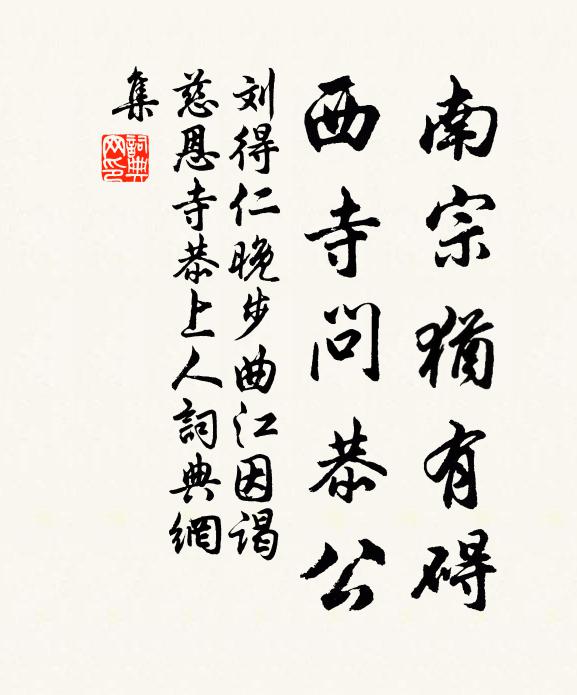 南宗猶有碍
西寺問恭公
刘得仁晚步曲江因谒
慈恩寺恭上人詞典網
集
詞典網印